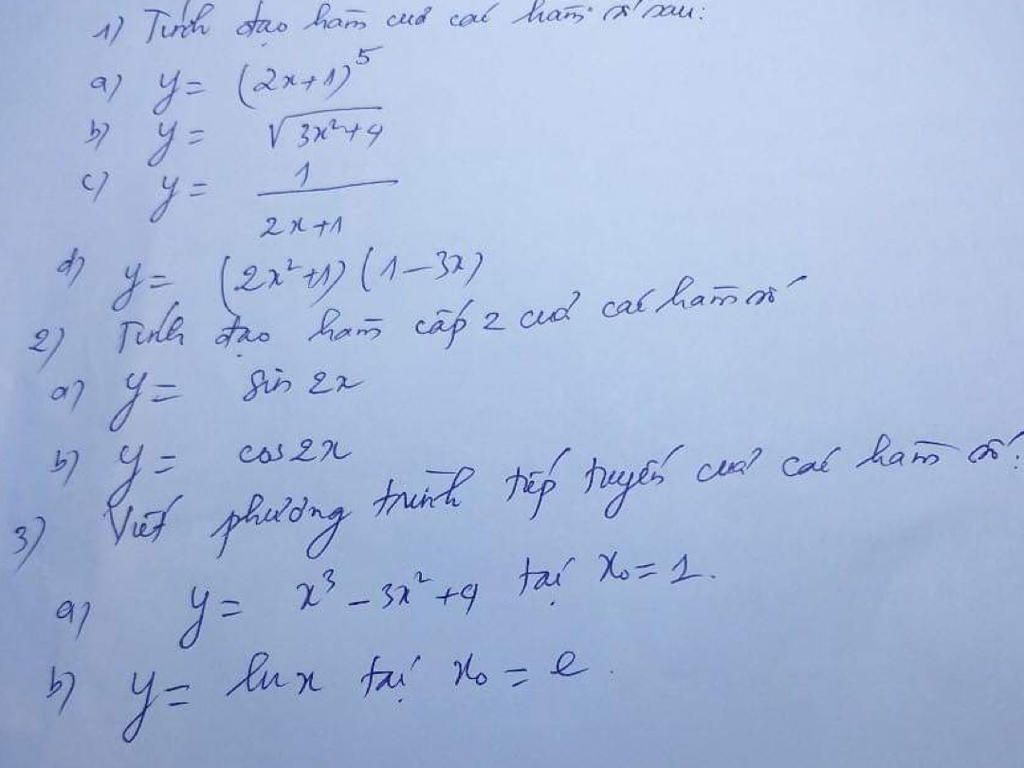 1) Tính đạo hàm của các hàm số sau:
a) y = (2x+1)^5
b) y = √(3x²+4)
c) y = 1/(2x+1)
d) y = (2x²+1)(1-3x)
2) Tính đạo hàm cấp 2 của các hàm số
a) y = sin 2x
b) y = cos2x
3) Viết phương trình tiếp tuyến của các hàm số:
a) y = x³ - 3x² + 4 tại x₀ = 1.
b) y = ln x tại x₀ = e.